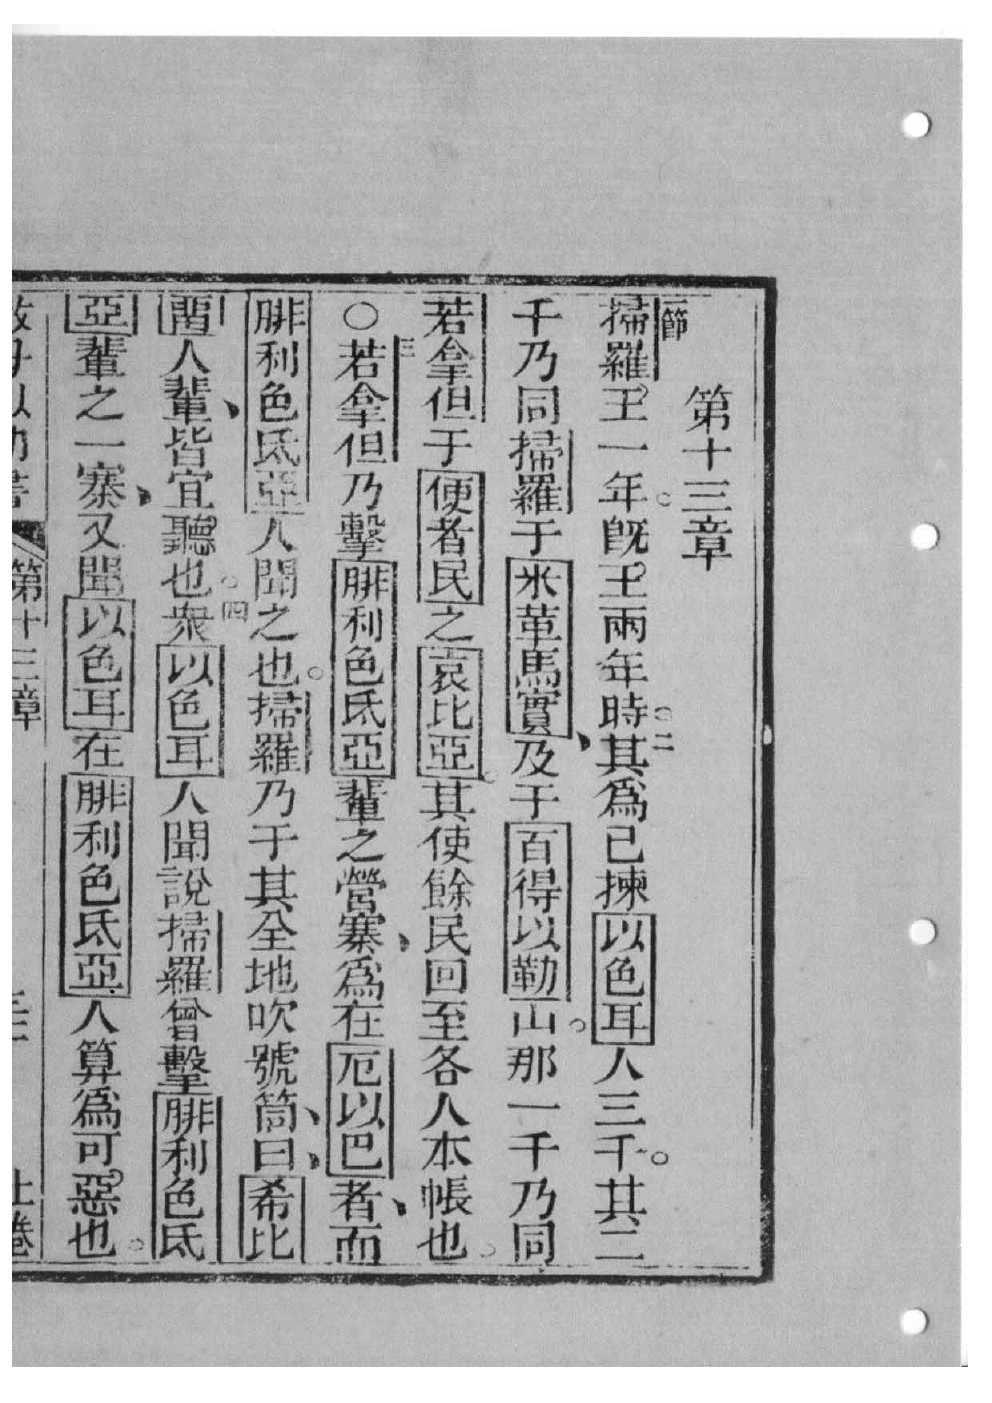 第十三章
一節 掃羅王一年。旣王兩年時。二其爲已揀以色耳人三千。其二
千乃同掃羅于米革馬實、及于百得以勒山。那一千乃同
若拿但于便者民之哀比亞。其使餘民回至各人本帳也。
○三若拿但乃擊腓利色氐亞輩之營寨、爲在厄以巴者、而
腓利色氐亞人聞之也。掃羅乃于其全地吹號筒、曰、希比
留人輩、皆宜聽也。四衆以色耳人聞說掃羅曾擊腓利色氐
亞輩之一寨、又聞以色耳在腓利色氐亞人算爲可惡也。
第十三章 上卷